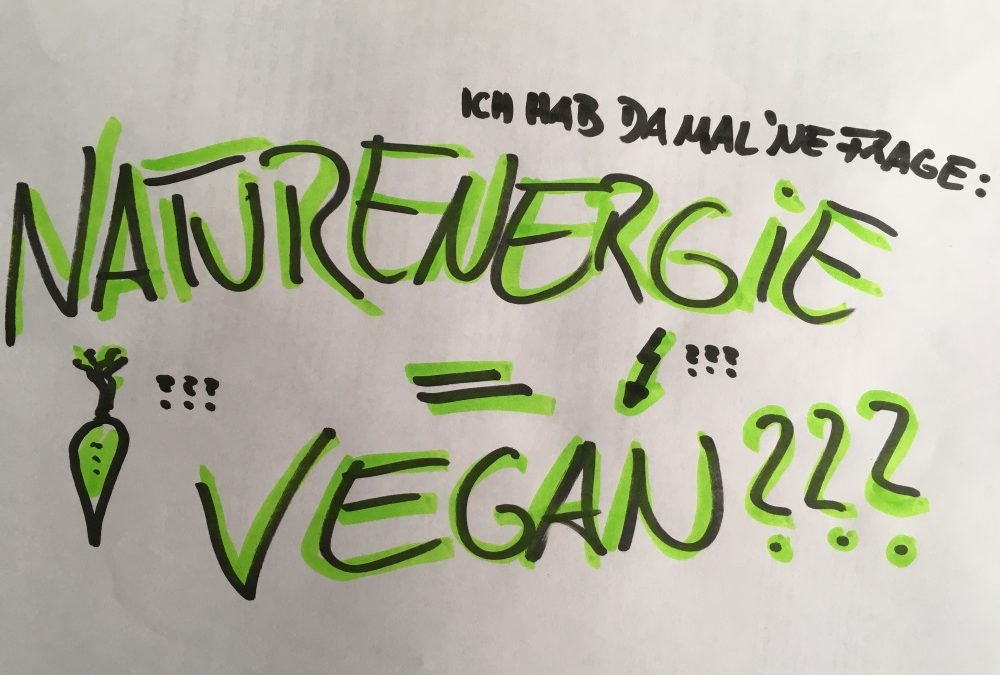 ICH HAB DA MAL 'NE FRAGE:
NATURENERGIE
??? = ???
VEGAN???